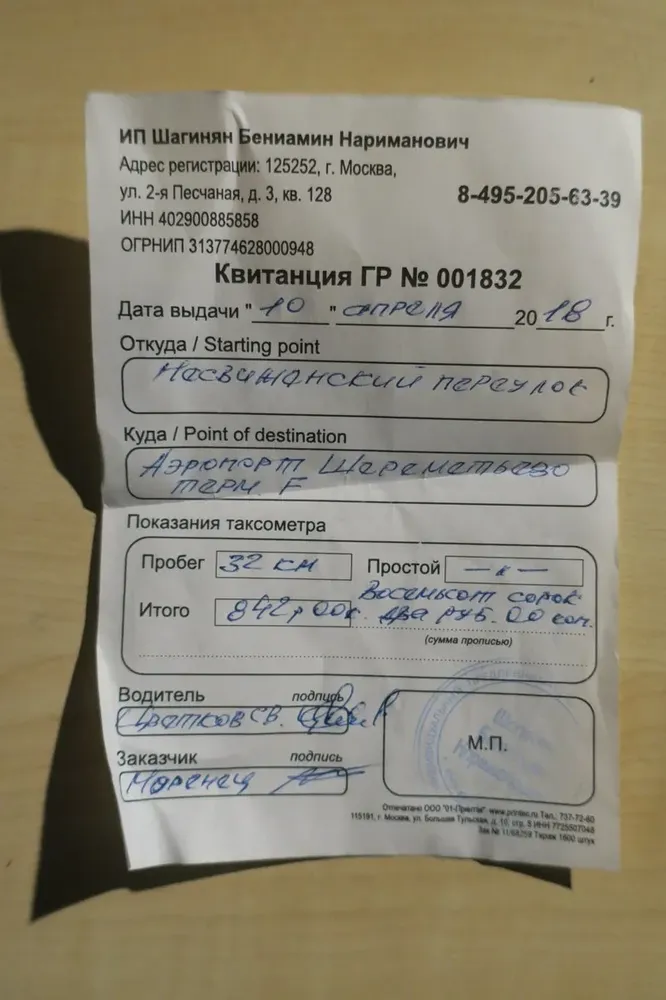 ИП Шагинян Бениамин Нариманович
Адрес регистрации: 125252, г. Москва,
ул. 2-я Песчаная, д. 3, кв. 128
8-495-205-63-39
ИНН 402900885858
ОГРНИП 313774628000948
Квитанция ГР № 001832
Дата выдачи "10" апреля 2018 г.
Откуда / Starting point
Несвижский переулок
Куда / Point of destination
Аэропорт Шереметьево
терм. F
Показания таксометра
Пробег 32 км Простой —"—
Восемьсот сорок
Итого 842 р 00 к. два руб. 00 коп.
(сумма прописью)
Водитель подпись
С.В.
Заказчик подпись
М.П.
Отпечатано ООО "01-Принтм" Тел.: 737-72-60
115191, г. Москва, ул. Большая Тульская, д. 10, стр. 5 ИНН 7725507048
Тираж 1600 штук